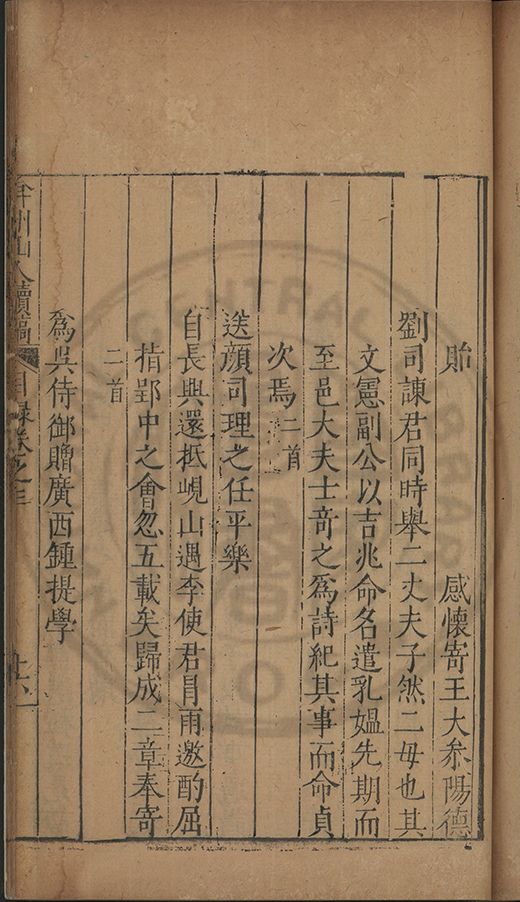 貽　感懷寄王大叅陽德
劉司諫君同時舉二丈夫子然二母也其
文憲副公以吉兆命名遣乳媼先期而
至邑大夫士竒之爲詩紀其事而命貞
次焉二首
送顔司理之任平樂
自長興還抵峴山遇李使君冐雨邀酌屈
指郢中之會忽五載矣歸成二章奉寄
二首
爲吳侍御贈廣西鍾提學
弇州山人續稿 目録卷之三